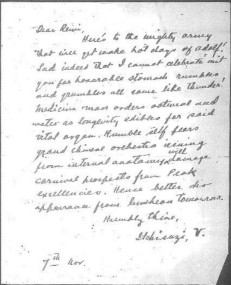 Dear Revi,
Here's to the mighty army
that will yet make hot dogs of adolf!
Sad indeed that I cannot celebrate wit
you for honorable stomach rumbles
and grumbles all same like thunder!
Medicine man orders oatmeal and
water as longevity edibles for said
vital organ. Humble self fears
grand chinese orchestra issuing
from internal anatomy will damage
carnivel prospects from Peak
excellencies. Hence better no
appearance from luncheon tomorrow.
Humbly thine,
V.
7th Nov.